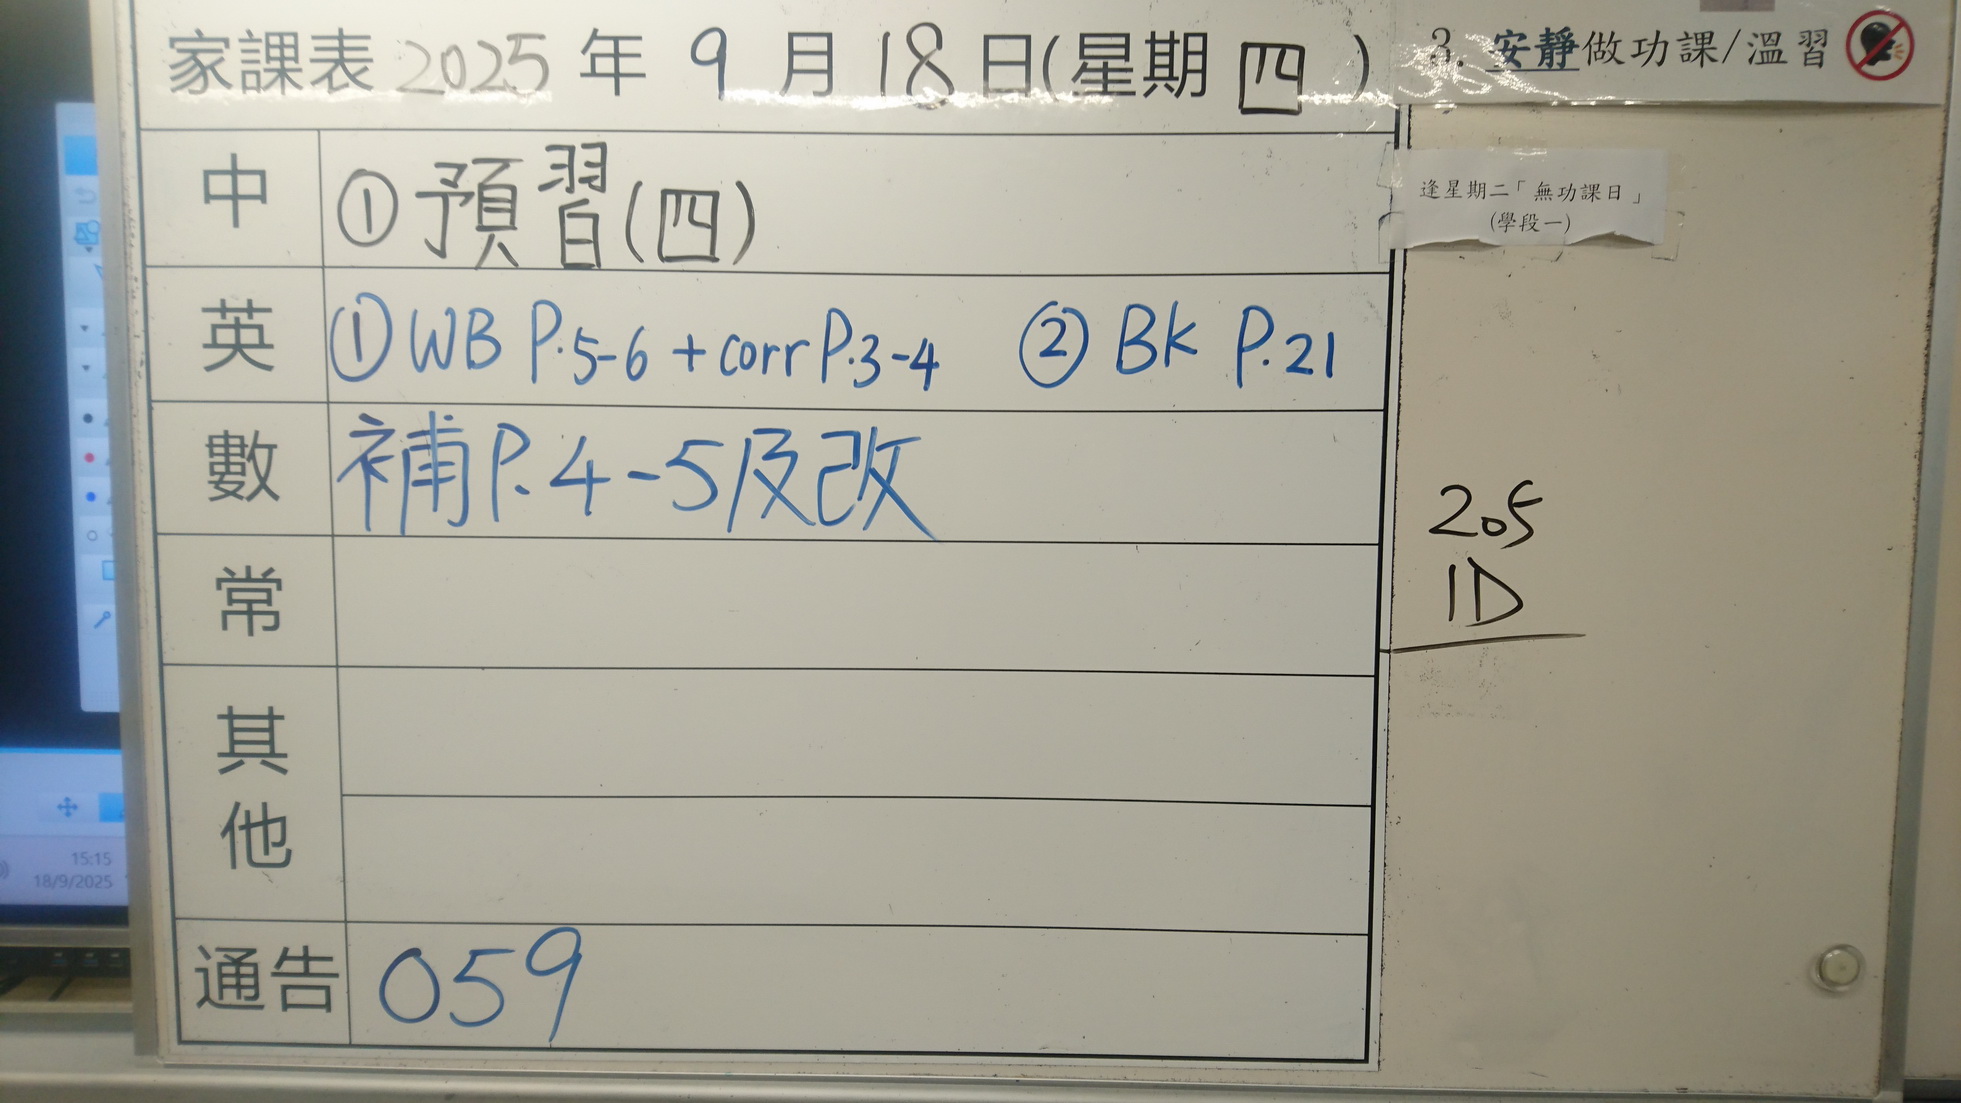 家課表 2025 年 9 月 18 日(星期 四 )
中 ①預習(四)
英 ①WB P.5-6 +corr P.3-4 ② BK P.21
數 補P.4-5及改
常
其他
通告 059
3. 安靜做功課/溫習
逢星期二「無功課日」
(學段一)
205
1D
15:15
18/9/2025